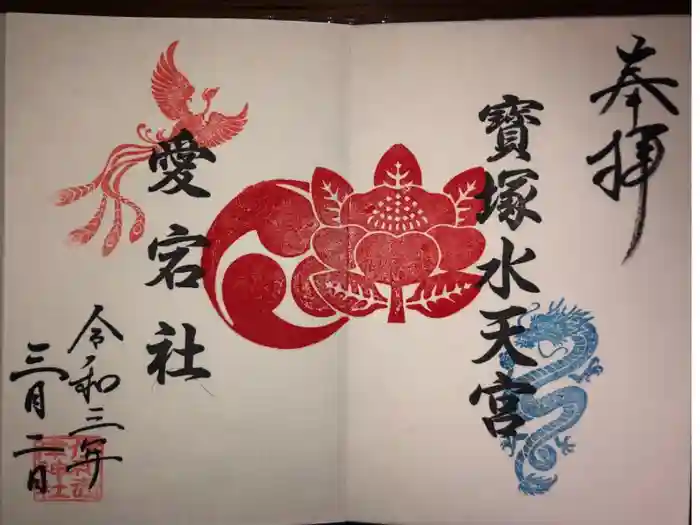 奉拝
寶塚水天宮
愛宕社
令和三年
三月二日